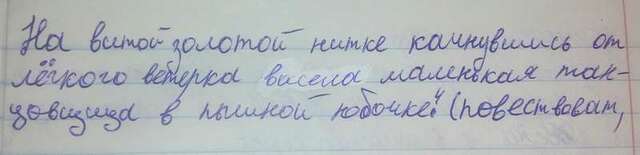 На витой золотой нитке качнувшись от
лёгкого ветерка висела маленькая тан-
цовщица в пышной юбочке." (повествоват,